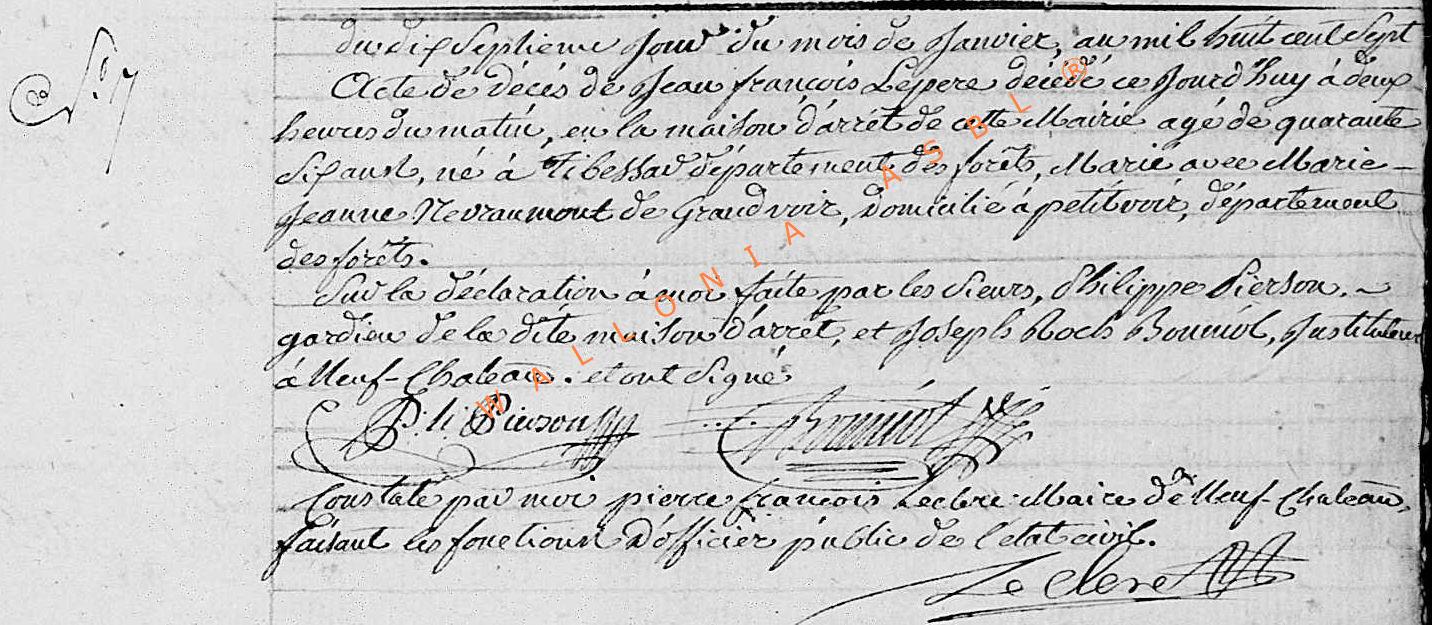 N.º 7
du dixseptieme jour du mois de Janvier, an mil huit cent Sept
Acte de décés de Jean françois Lepere décédé ce Jourd'huy à deux
heures du matin, en la maison d'arrêt de cette Mairie agé de quarante
Six ans, né à Tibessar département des forêts, Marié avec Marie
Jeanne Nevraumont de Grandvoir, domicilié à petitvoir, département
des forêts.
Sur la déclaration à moi faite par les Sieurs, Philippe Pierson,
gardien de la dite maison d'arrêt, et Joseph Roch Bonniol, Instituteur
à Neuf-Chateau. et ont Signé
Ph. Pierson Bonniol
Constaté par moi pierre françois Leclere Maire de Neuf-Chateau,
faisant les fonctions d'officier public de l'état civil.
Le Clere
WALLONIA ASBL ®